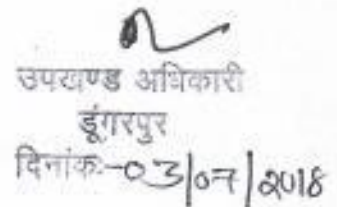 उपखण्ड अधिकारी
डूंगरपुर
दिनांकः-03/07/2018